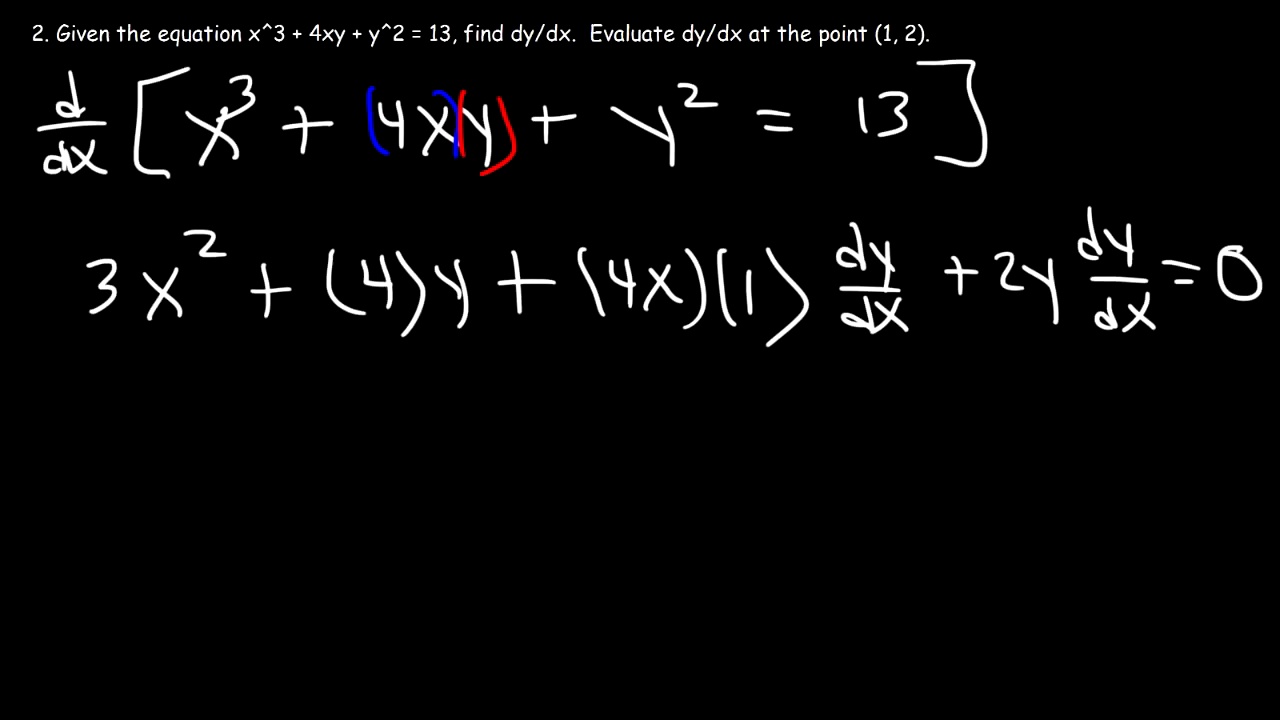 2. Given the equation x^3 + 4xy + y^2 = 13, find dy/dx. Evaluate dy/dx at the point (1, 2).
d/dx [x³ + (4x)(y) + y² = 13]
3x² + (4)y + (4x)(1) dy/dx + 2y dy/dx = 0